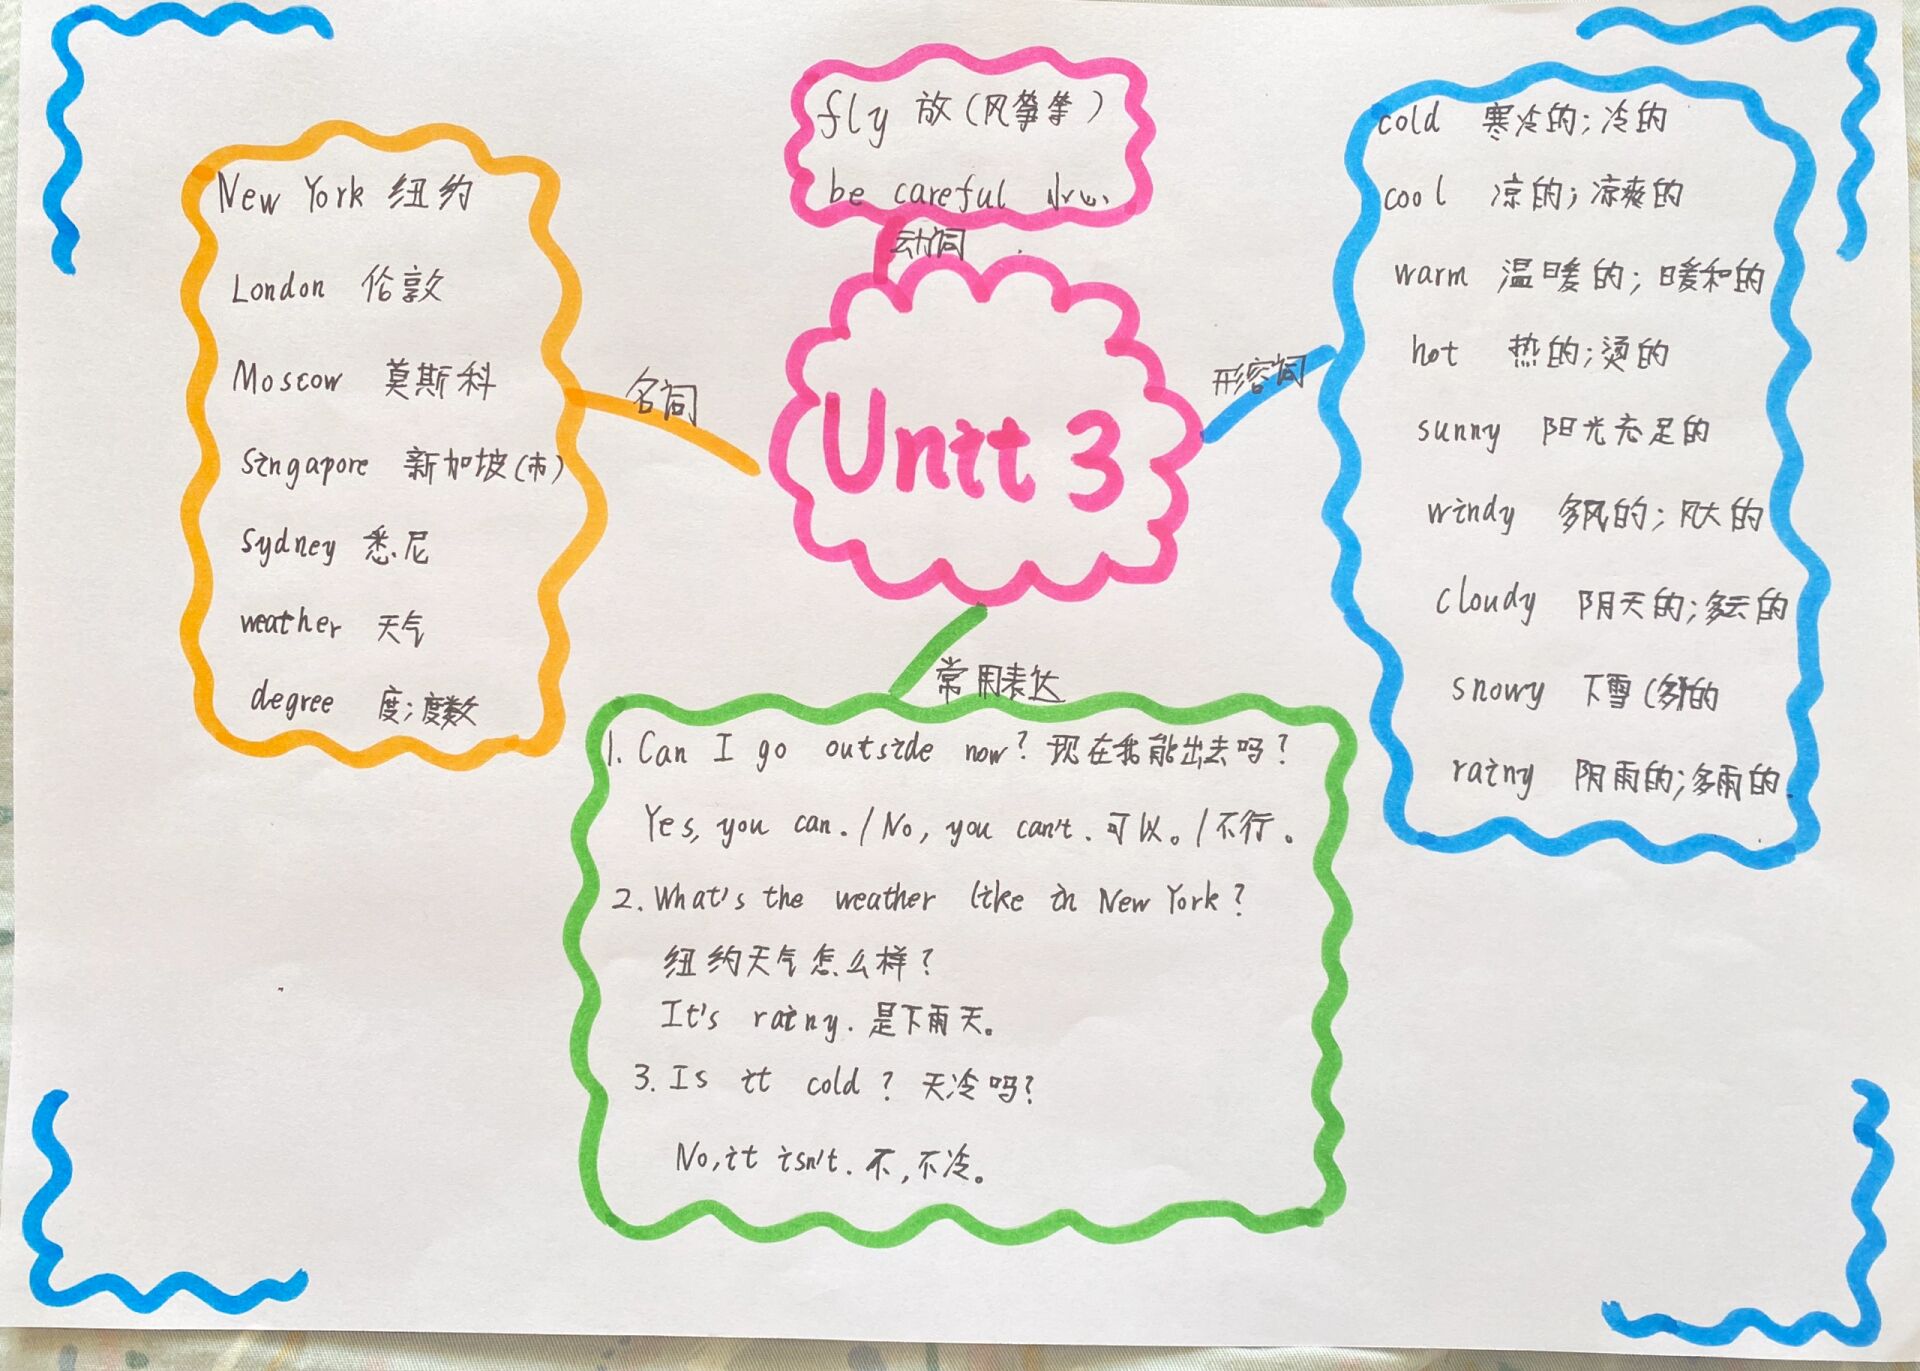 fly 放(风筝等)
be careful 小心
动词
Unit 3
名词
New York 纽约
London 伦敦
Moscow 莫斯科
Singapore 新加坡(市)
Sydney 悉尼
weather 天气
degree 度;度数
形容词
cold 寒冷的;冷的
cool 凉的;凉爽的
warm 温暖的;暖和的
hot 热的;烫的
sunny 阳光充足的
windy 多风的;风大的
cloudy 阴天的;多云的
snowy 下雪(多)的
rainy 阴雨的;多雨的
常用表达
1. Can I go outside now? 现在我能出去吗?
Yes, you can. / No, you can't. 可以。/不行。
2. What's the weather like in New York?
纽约天气怎么样?
It's rainy. 是下雨天。
3. Is it cold? 天冷吗?
No, it isn't. 不,不冷。